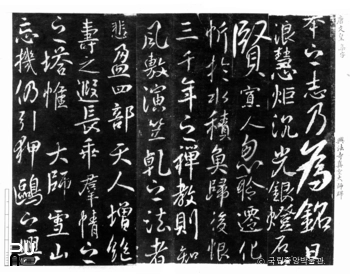 之志乃為
浪慧炬沉光銀燈
賢寔人忽聆遷化
忻於水積奐歸後恨
三千年之禪教則知
風敷演竺乾之法者
悲盈四部天人增絶
壽之遐長乘羣情之
之塔惟 大師雪山
忘機仍引狎鷗之興
興法寺真空大師碑
국립중앙박물관